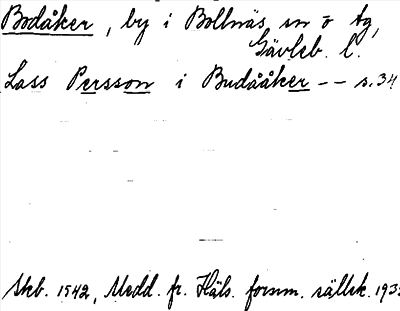 Bodåker, by i Bollnäs sn o tg,
Gävleb. l.
Lass Persson i Budååker -- s. 34
Skb. 1942, Medd. fr. Häls. fornm. sällsk. 193